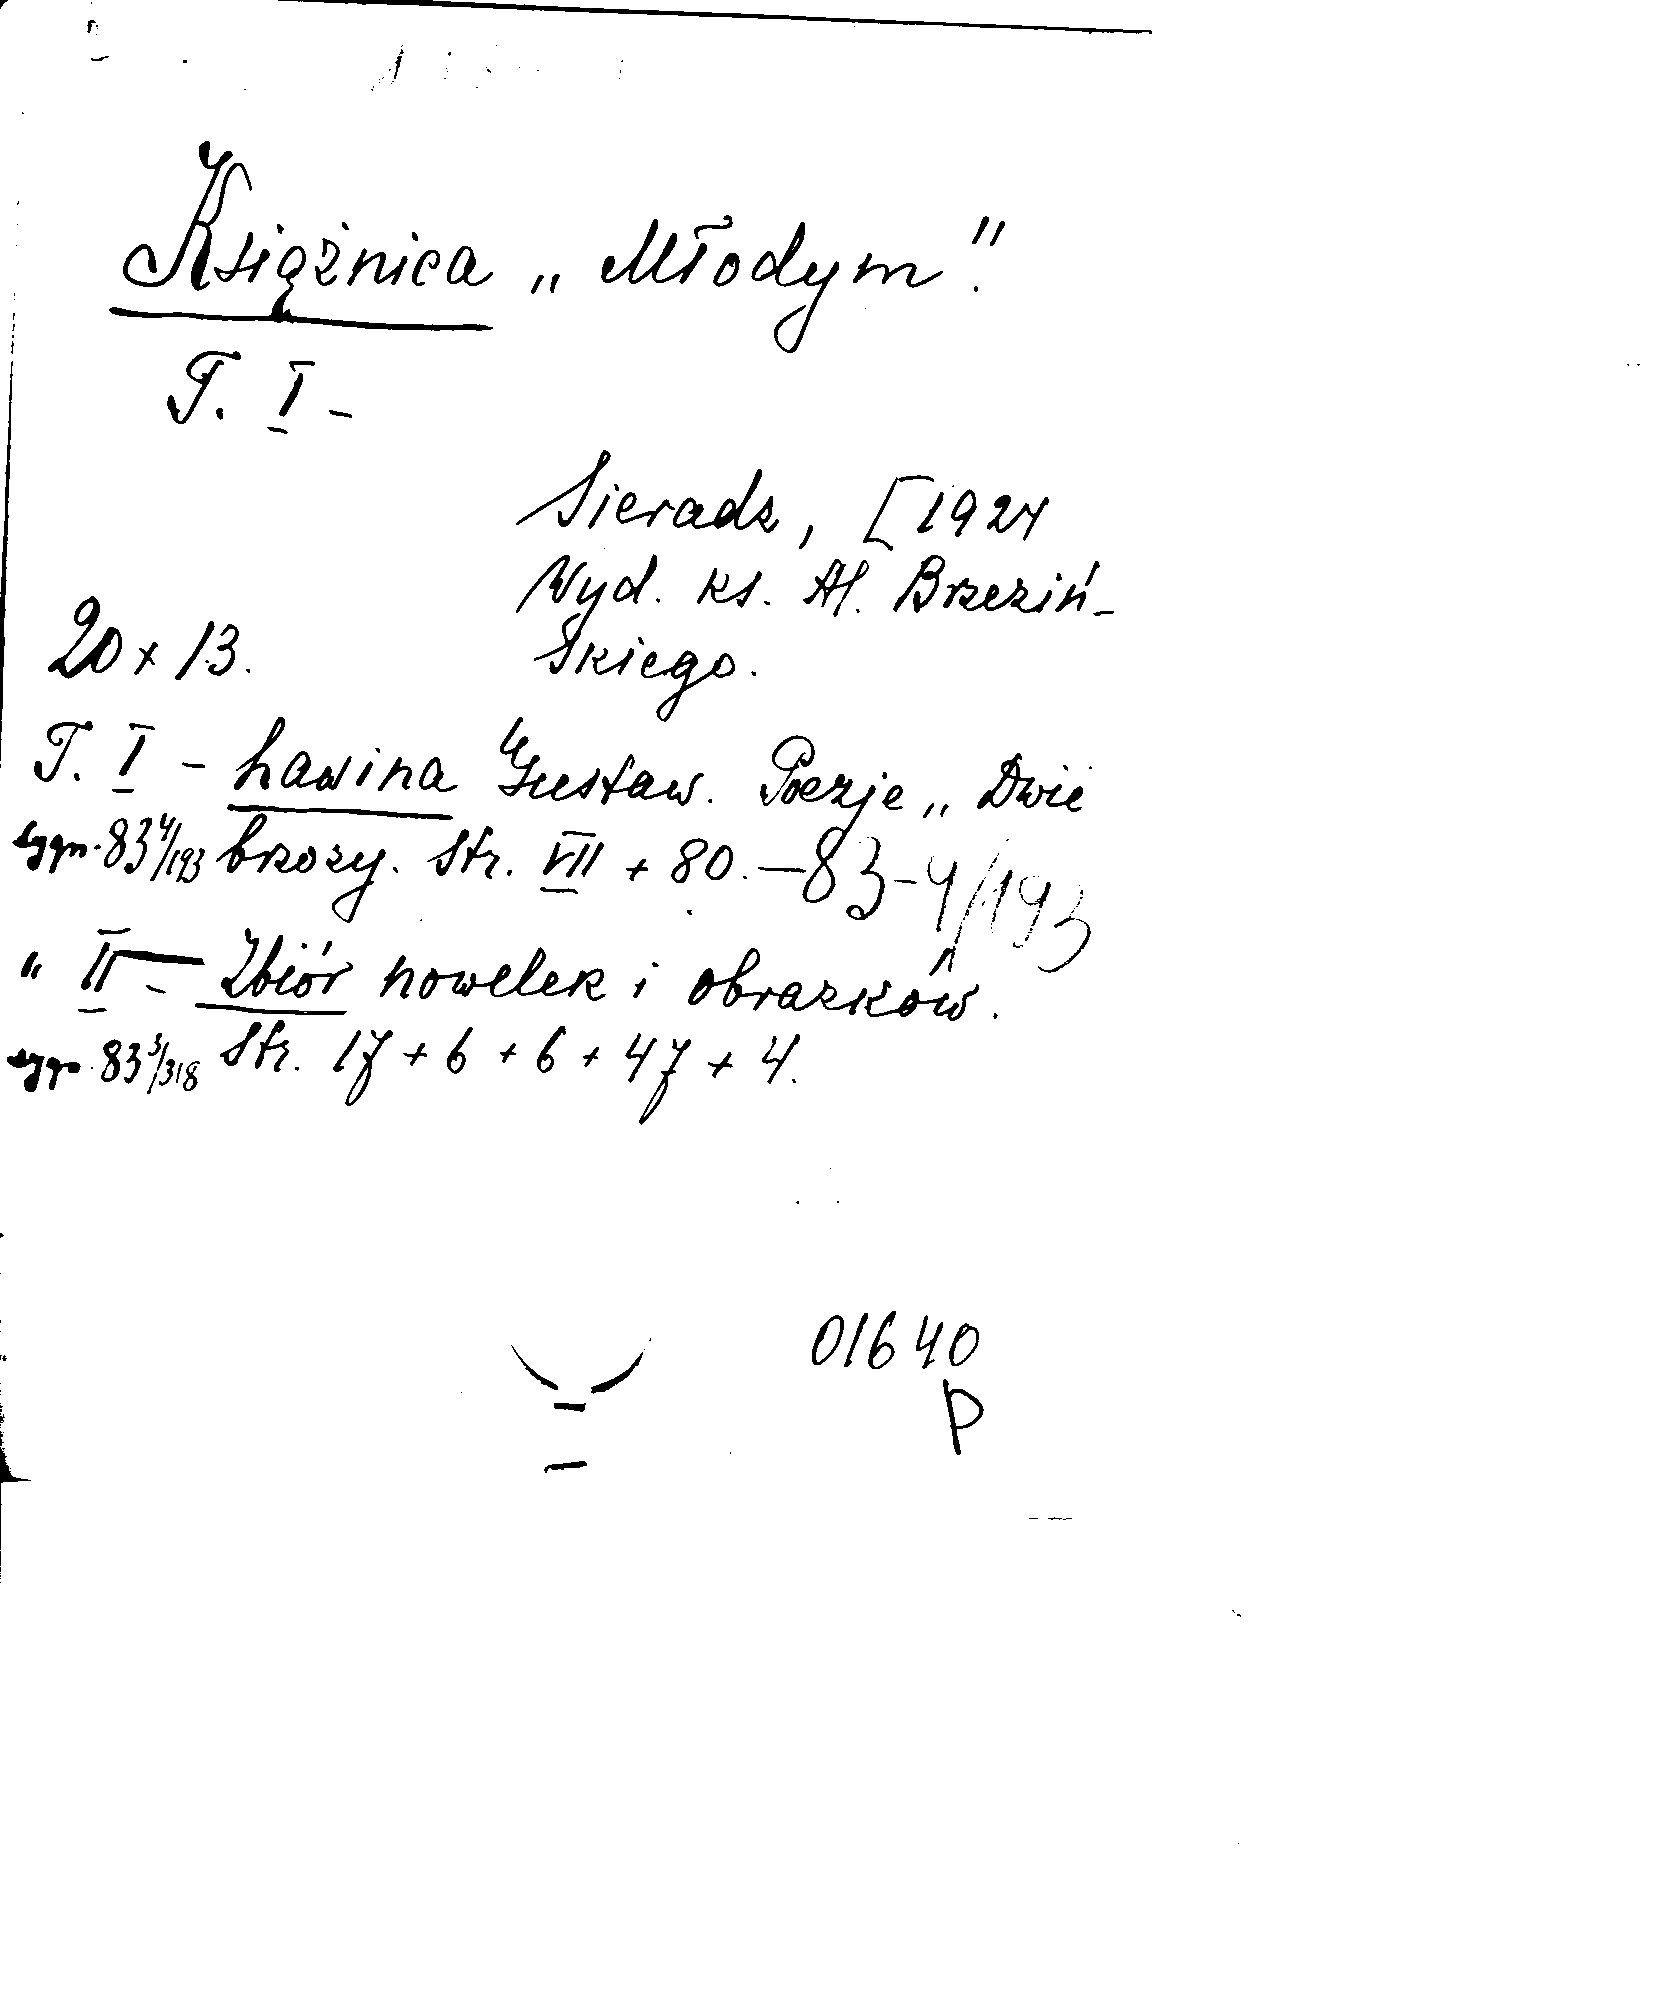 Książnica „Młodym".
T. I -
Sieradz, [1924
Wyd. ks. Al. Brzeziń-
20 x 13. skiego.
T. I - Lawina Gustaw. Poezje „Dwie
sygn. 83 4/193 brzozy. Str. VII + 80. - 83-4/193
" II - Zbiór nowelek i obrazków.
sygn. 83 3/318 Str. 17 + 6 + 6 + 47 + 4.
01640
P